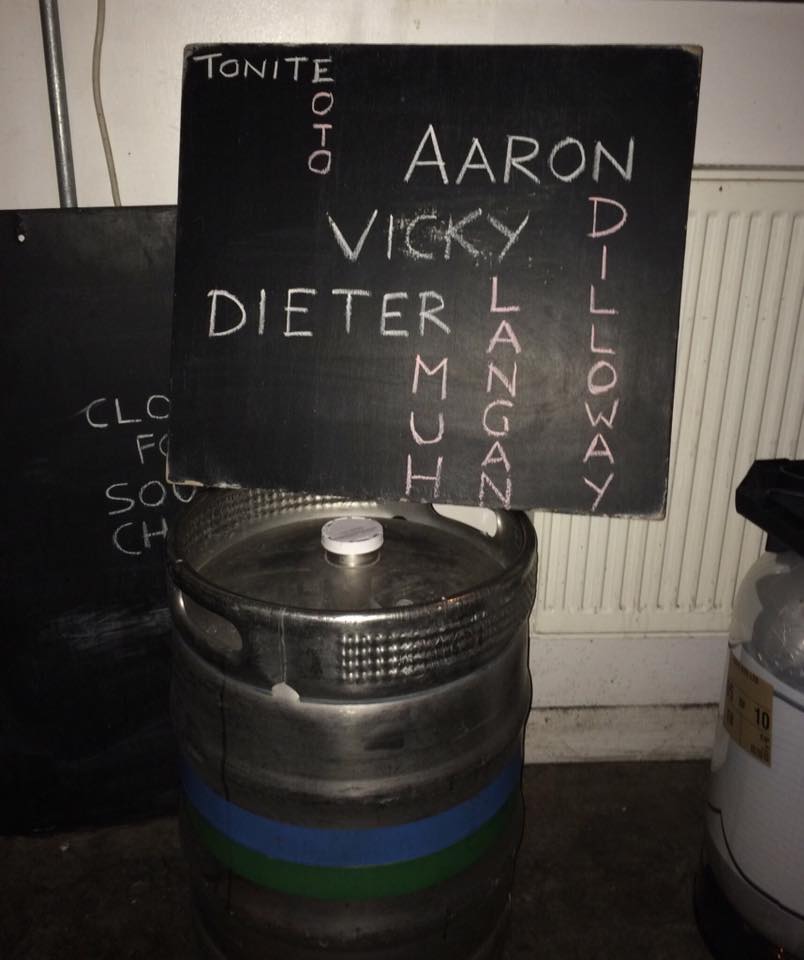 TONITE
OTO
AARON
DILLOWAY
VICKY
LANGAN
DIETER
MUH
CLO
FO
SOU
CH
10